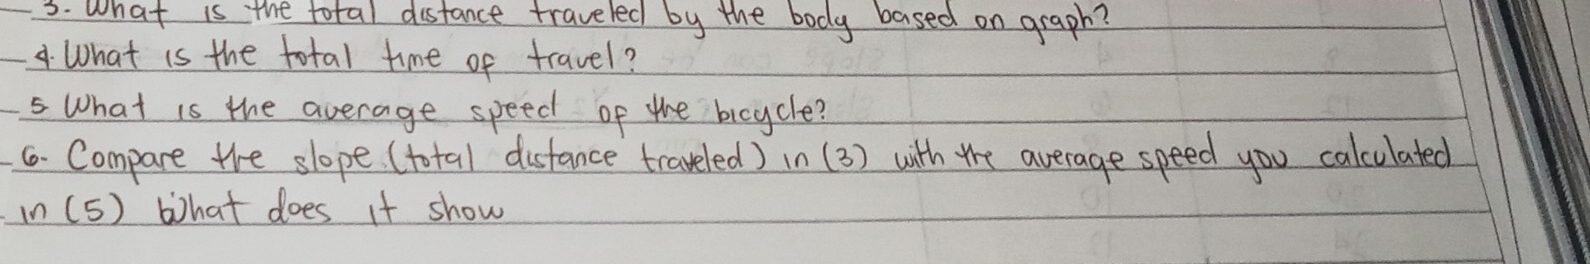 3. What is the total distance traveled by the body based on graph?
4. What is the total time of travel?
5 What is the average speed of the bicycle?
6. Compare the slope (total distance traveled) in (3) with the average speed you calculated
in (5) What does it show